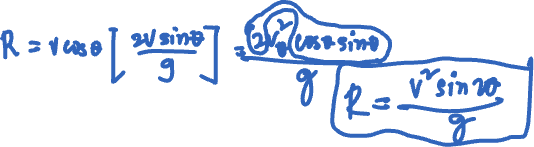 R = v cosθ [ 2v sinθ / g ] = 2v² cosθ sinθ / g
R = v² sin 2θ / g